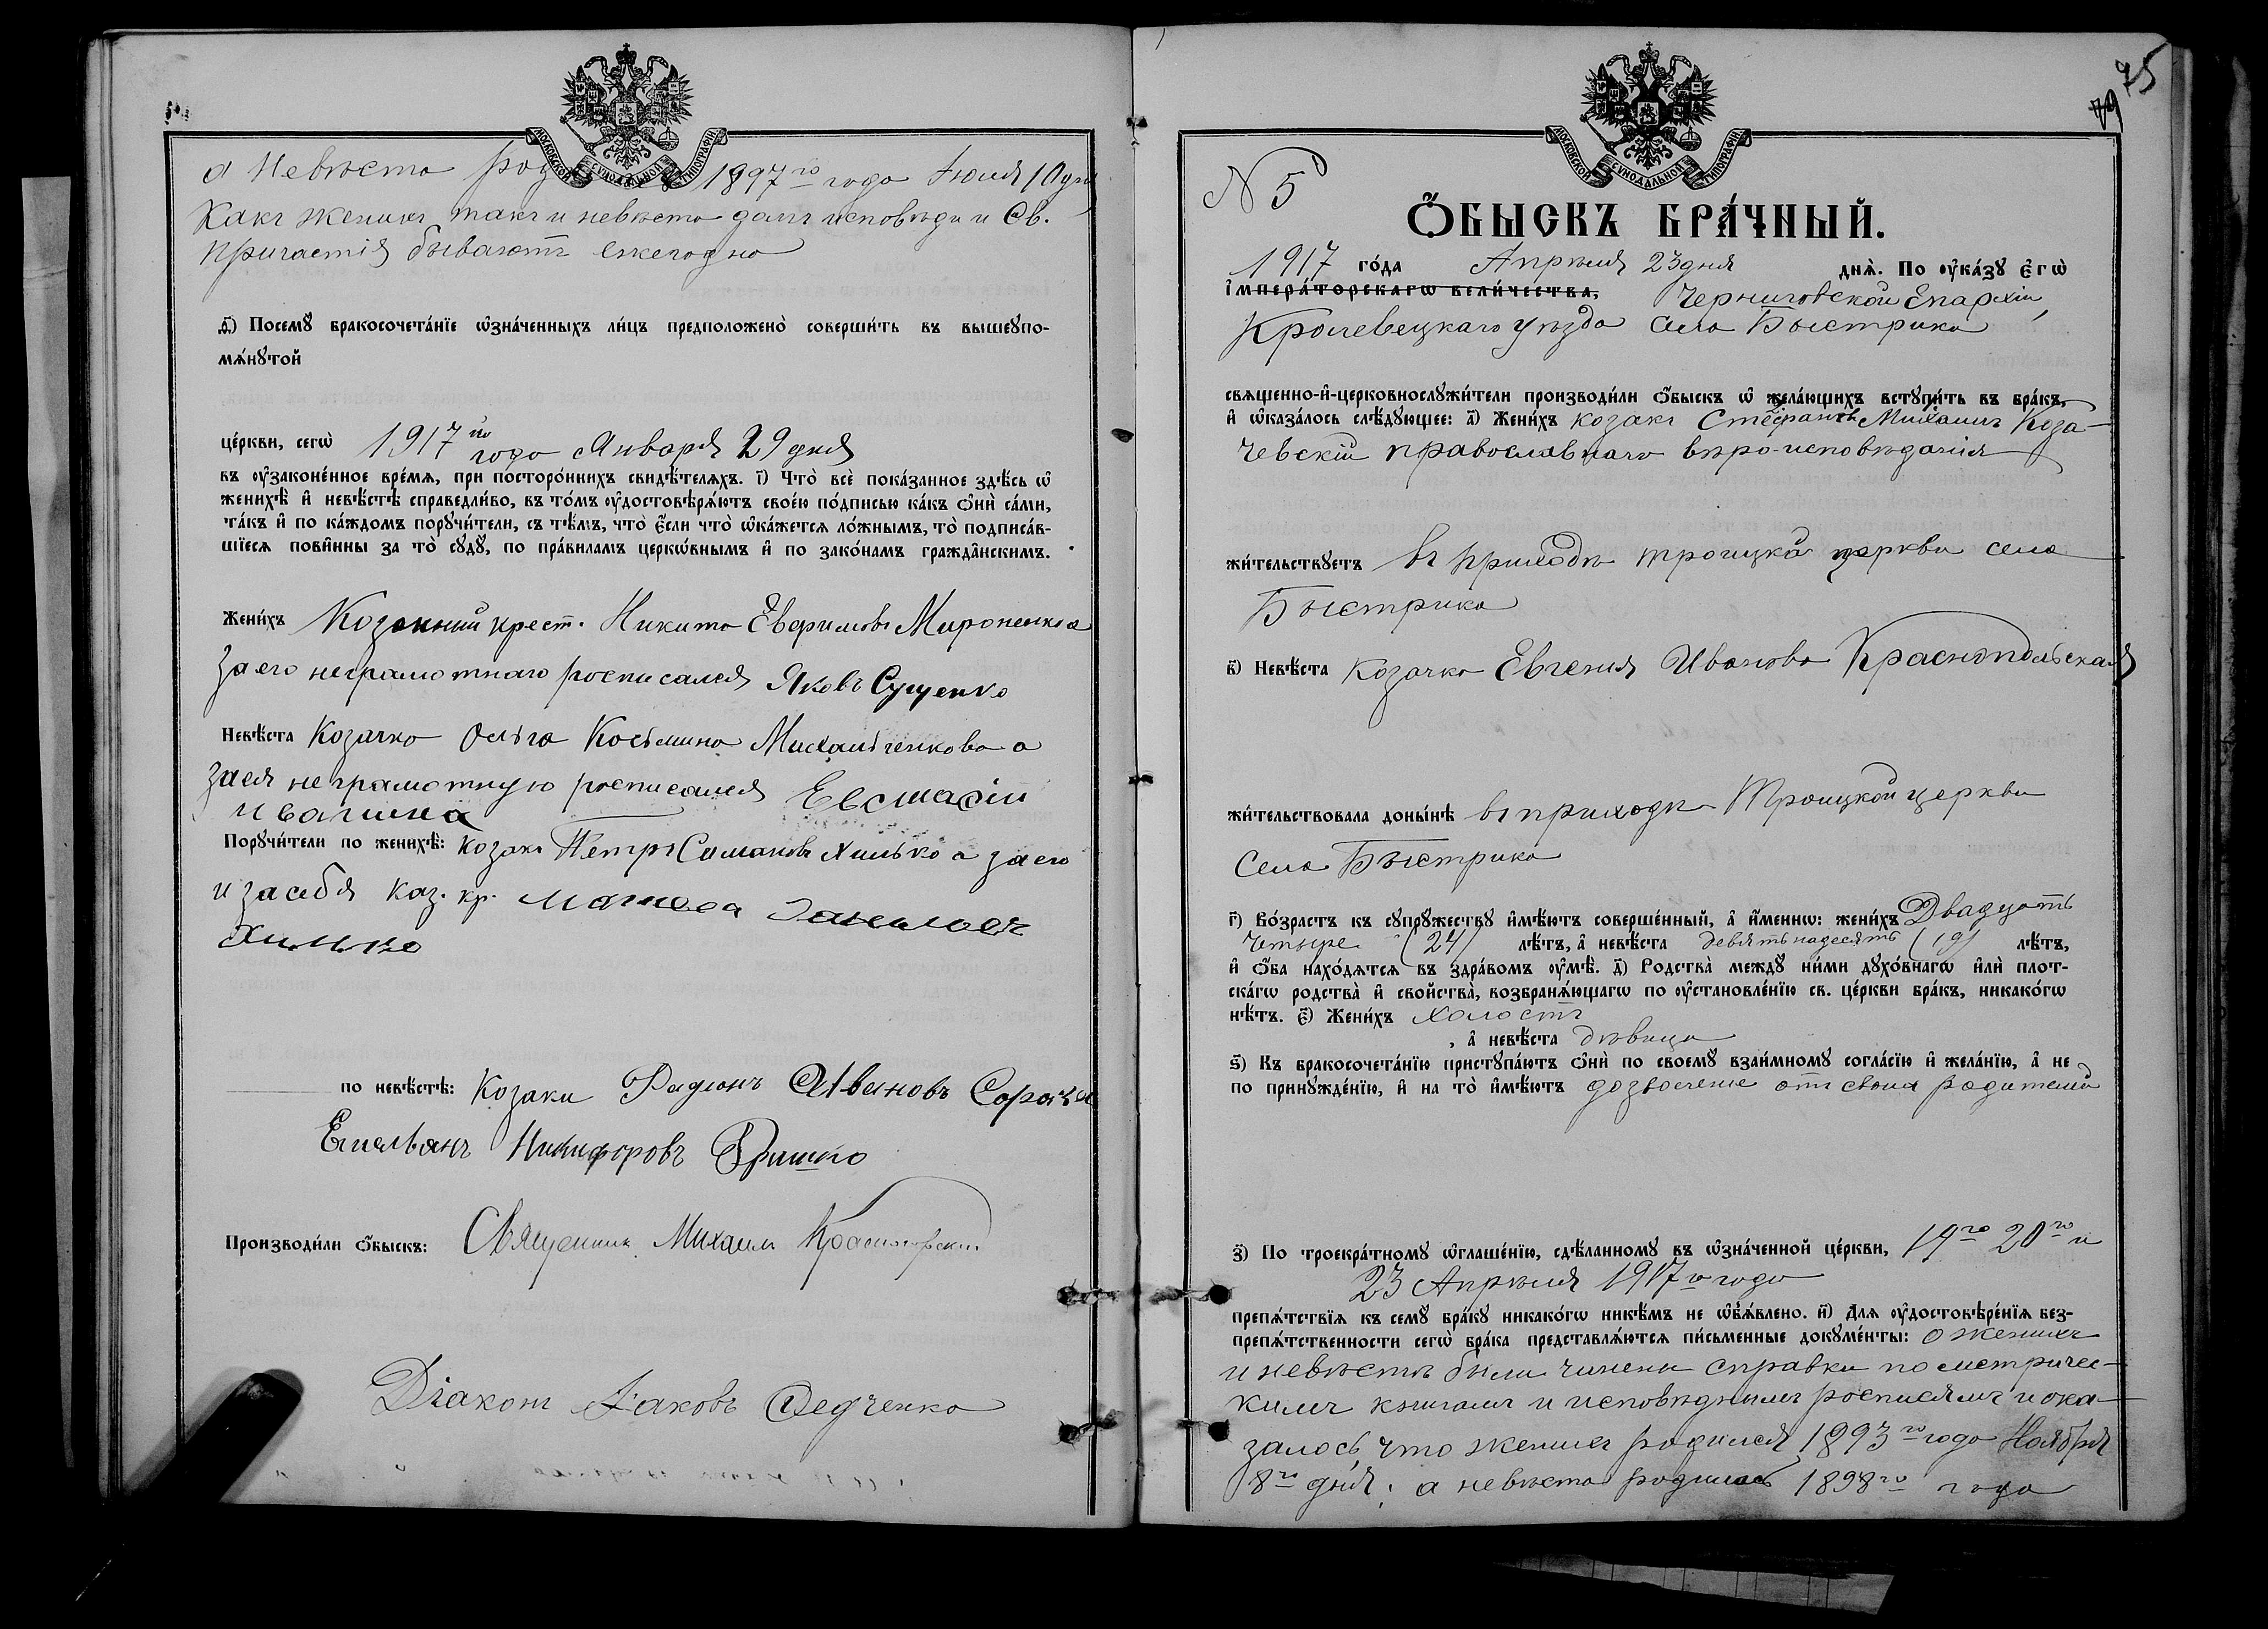 МОСКОВСКОЙ СУНОДАЛЬНОЙ ТИПОГРАФІИ
а Невѣста род 1897го года Іюля 10 дня
Какъ женихъ, такъ и невѣста долгъ исповѣди и Св.
Причастія бываютъ ежегодно
д҃) Посемꙋ бракосочета́нїе ѡ҆зна́ченныхъ ли́цъ предположено̀ соверши́ть въ вышеꙋпо-
мѧ́нꙋтой
це́ркви, сегѡ̀ 1917го года Января 29 дня
въ ᲂу҆законе́нное вре́мѧ, при посторо́ннихъ свидѣ́телѧхъ. і҃) Что̀ всѐ пока́занное здѣ́сь ѡ҆
женихѣ̀ и҆ невѣ́стѣ справедли́во, въ то́мъ ᲂу҆достовѣрѧ́ютъ свое́ю по́дписью ка́къ ѻ҆нѝ са́ми,
та́къ и҆ по ка́ждомъ порꙋчи́тели, съ тѣ́мъ, что̀ є҆́сли что̀ ѡ҆ка́жетсѧ ло́жнымъ, то̀ подписа́в-
шїесѧ пови́нны за то̀ сꙋдꙋ̀, по пра́виламъ церко́внымъ и҆ по зако́намъ гражда́нскимъ.
Жени́хъ Козачій крест. Никита Евфимовъ Мироненко а
за его неграмотнаго росписался Яковъ Сущенко
Невѣ́ста Козачка Ольга Косьмина Михальченкова а
за ея неграмотную росписался Евстафій
Ивашина
Порꙋчи́тели по женихѣ̀: козакъ Петръ Симоновъ Хилько а за его
и за себя каз. кр. Хилько
по невѣ́стѣ: Козаки Родіонъ Ивановъ
Емельянъ Никифоровъ Гришко
Производи́ли ѻ҆́быскъ: Священникъ Михаилъ
Діаконъ Іаковъ Федченко
75
МОСКОВСКОЙ СУНОДАЛЬНОЙ ТИПОГРАФІИ
N 5
Ѻ҆́БЫСКЪ БРА́ЧНЫЙ.
1917 го́да Апрѣля 23 дня днѧ̀. По ᲂу҆ка́зꙋ Є҆гѡ̀
І҆мпера́торскагѡ вели́чества, Черниговской Епархіи,
Кролевецкаго уѣзда села Быстрика
свѧщенно-и҆-церковнослꙋжи́тели производи́ли ѻ҆́быскъ ѡ҆ жела́ющихъ встꙋпи́ть въ бра́къ,
и҆ ѡ҆каза́лось слѣ́дꙋющее: а҃) Жени́хъ козакъ Стефанъ Михаилъ Коза-
чевскій православнаго вѣро-исповѣданія
жи́тельствꙋетъ въ приходѣ Троицкой церкви села
Быстрика
в҃) Невѣ́ста Козачка Евгенія Иванова Краснопольская
жи́тельствовала доны́нѣ въ приходѣ Троицкой церкви
Села Быстрика
г҃) Во́зрастъ къ сꙋпрꙋ́жествꙋ и҆мѣ́ютъ соверше́нный, а҆ и҆́меннѡ: жени́хъ Двадцать
четыре (24) лѣ́тъ, а҆ невѣ́ста девятьнадесять (19) лѣ́тъ,
и҆ ѻ҆́ба нахо́дѧтсѧ въ здра́вомъ ᲂу҆мѣ̀. д҃) Родства̀ междꙋ̀ ни́ми дꙋхо́внагѡ и҆лѝ плот-
ска́гѡ родства̀ и҆ свойства̀, возбранѧ́ющагѡ по ᲂу҆становле́нїю св. це́ркви бра́къ, никако́гѡ
нѣ́тъ. є҃) Жени́хъ холостъ
, а҆ невѣ́ста дѣвица
ѕ҃) Къ бракосочета́нїю пристꙋпа́ютъ ѻ҆нѝ по своемꙋ̀ взаи́мномꙋ согла́сїю и҆ жела́нїю, а҆ не
по принꙋжде́нїю, и҆ на то̀ и҆мѣ́ютъ дозволеніе отъ своихъ родителей
з҃) По троекра́тномꙋ ѡ҆глаше́нїю, сдѣ́ланномꙋ въ ѡ҆зна́ченной це́ркви, 19го 20го и
23 Апрѣля 1917го года
препѧ́тствїѧ къ семꙋ̀ бра́кꙋ никако́гѡ никѣ́мъ не ѡ҆б̾ѧ́влено. и҃) Длѧ ᲂу҆достовѣре́нїѧ без-
препѧ́тственности сегѡ̀ бра́ка представлѧ́ютсѧ пи́сьменные докꙋме́нты: о женихѣ
и невѣстѣ были чинены справки по метричес-
кимъ книгамъ и исповѣднымъ росписямъ и ока-
залось, что женихъ родился 1893го года Ноября
8го дня, а невѣста родилась 1898го года